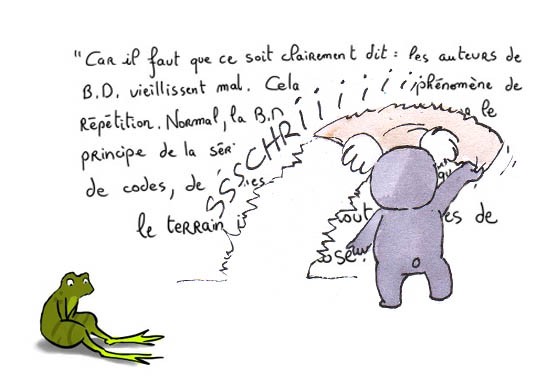 "Car il faut que ce soit clairement dit : les auteurs de
B.D. vieillissent mal. Cela phénomène de
Répétition. Normal, la B.D le
principe de la séri
de codes, de
le terrain out es de
SSSSCHRiiiiiii